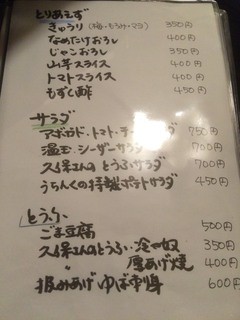 とりあえず
きゅうり (梅・もろみ・マヨ) 350円
なめたけおろし 400円
じゃこおろし 350円
山芋スライス 400円
トマトスライス 400円
もずく酢 450円
サラダ
アボガド・トマト・チーズサラダ 750円
温玉シーザーサラダ 700円
久保さんのとうふサラダ 700円
うちんくの特製ポテトサラダ 450円
とうふ
ごま豆腐 500円
久保さんのとうふ・冷や奴 350円
〃 厚あげ焼 400円
汲みあげゆば刺身 600円